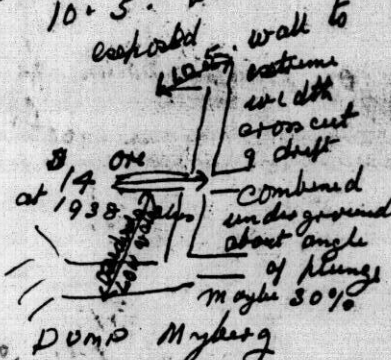 10 + 5.
exposed
10.5. wall to
extreme
width
crosscut
& drift
$14 ore
at 1938
combined
underground
about angle
of plunge
maybe 30%
DUMP Myberg